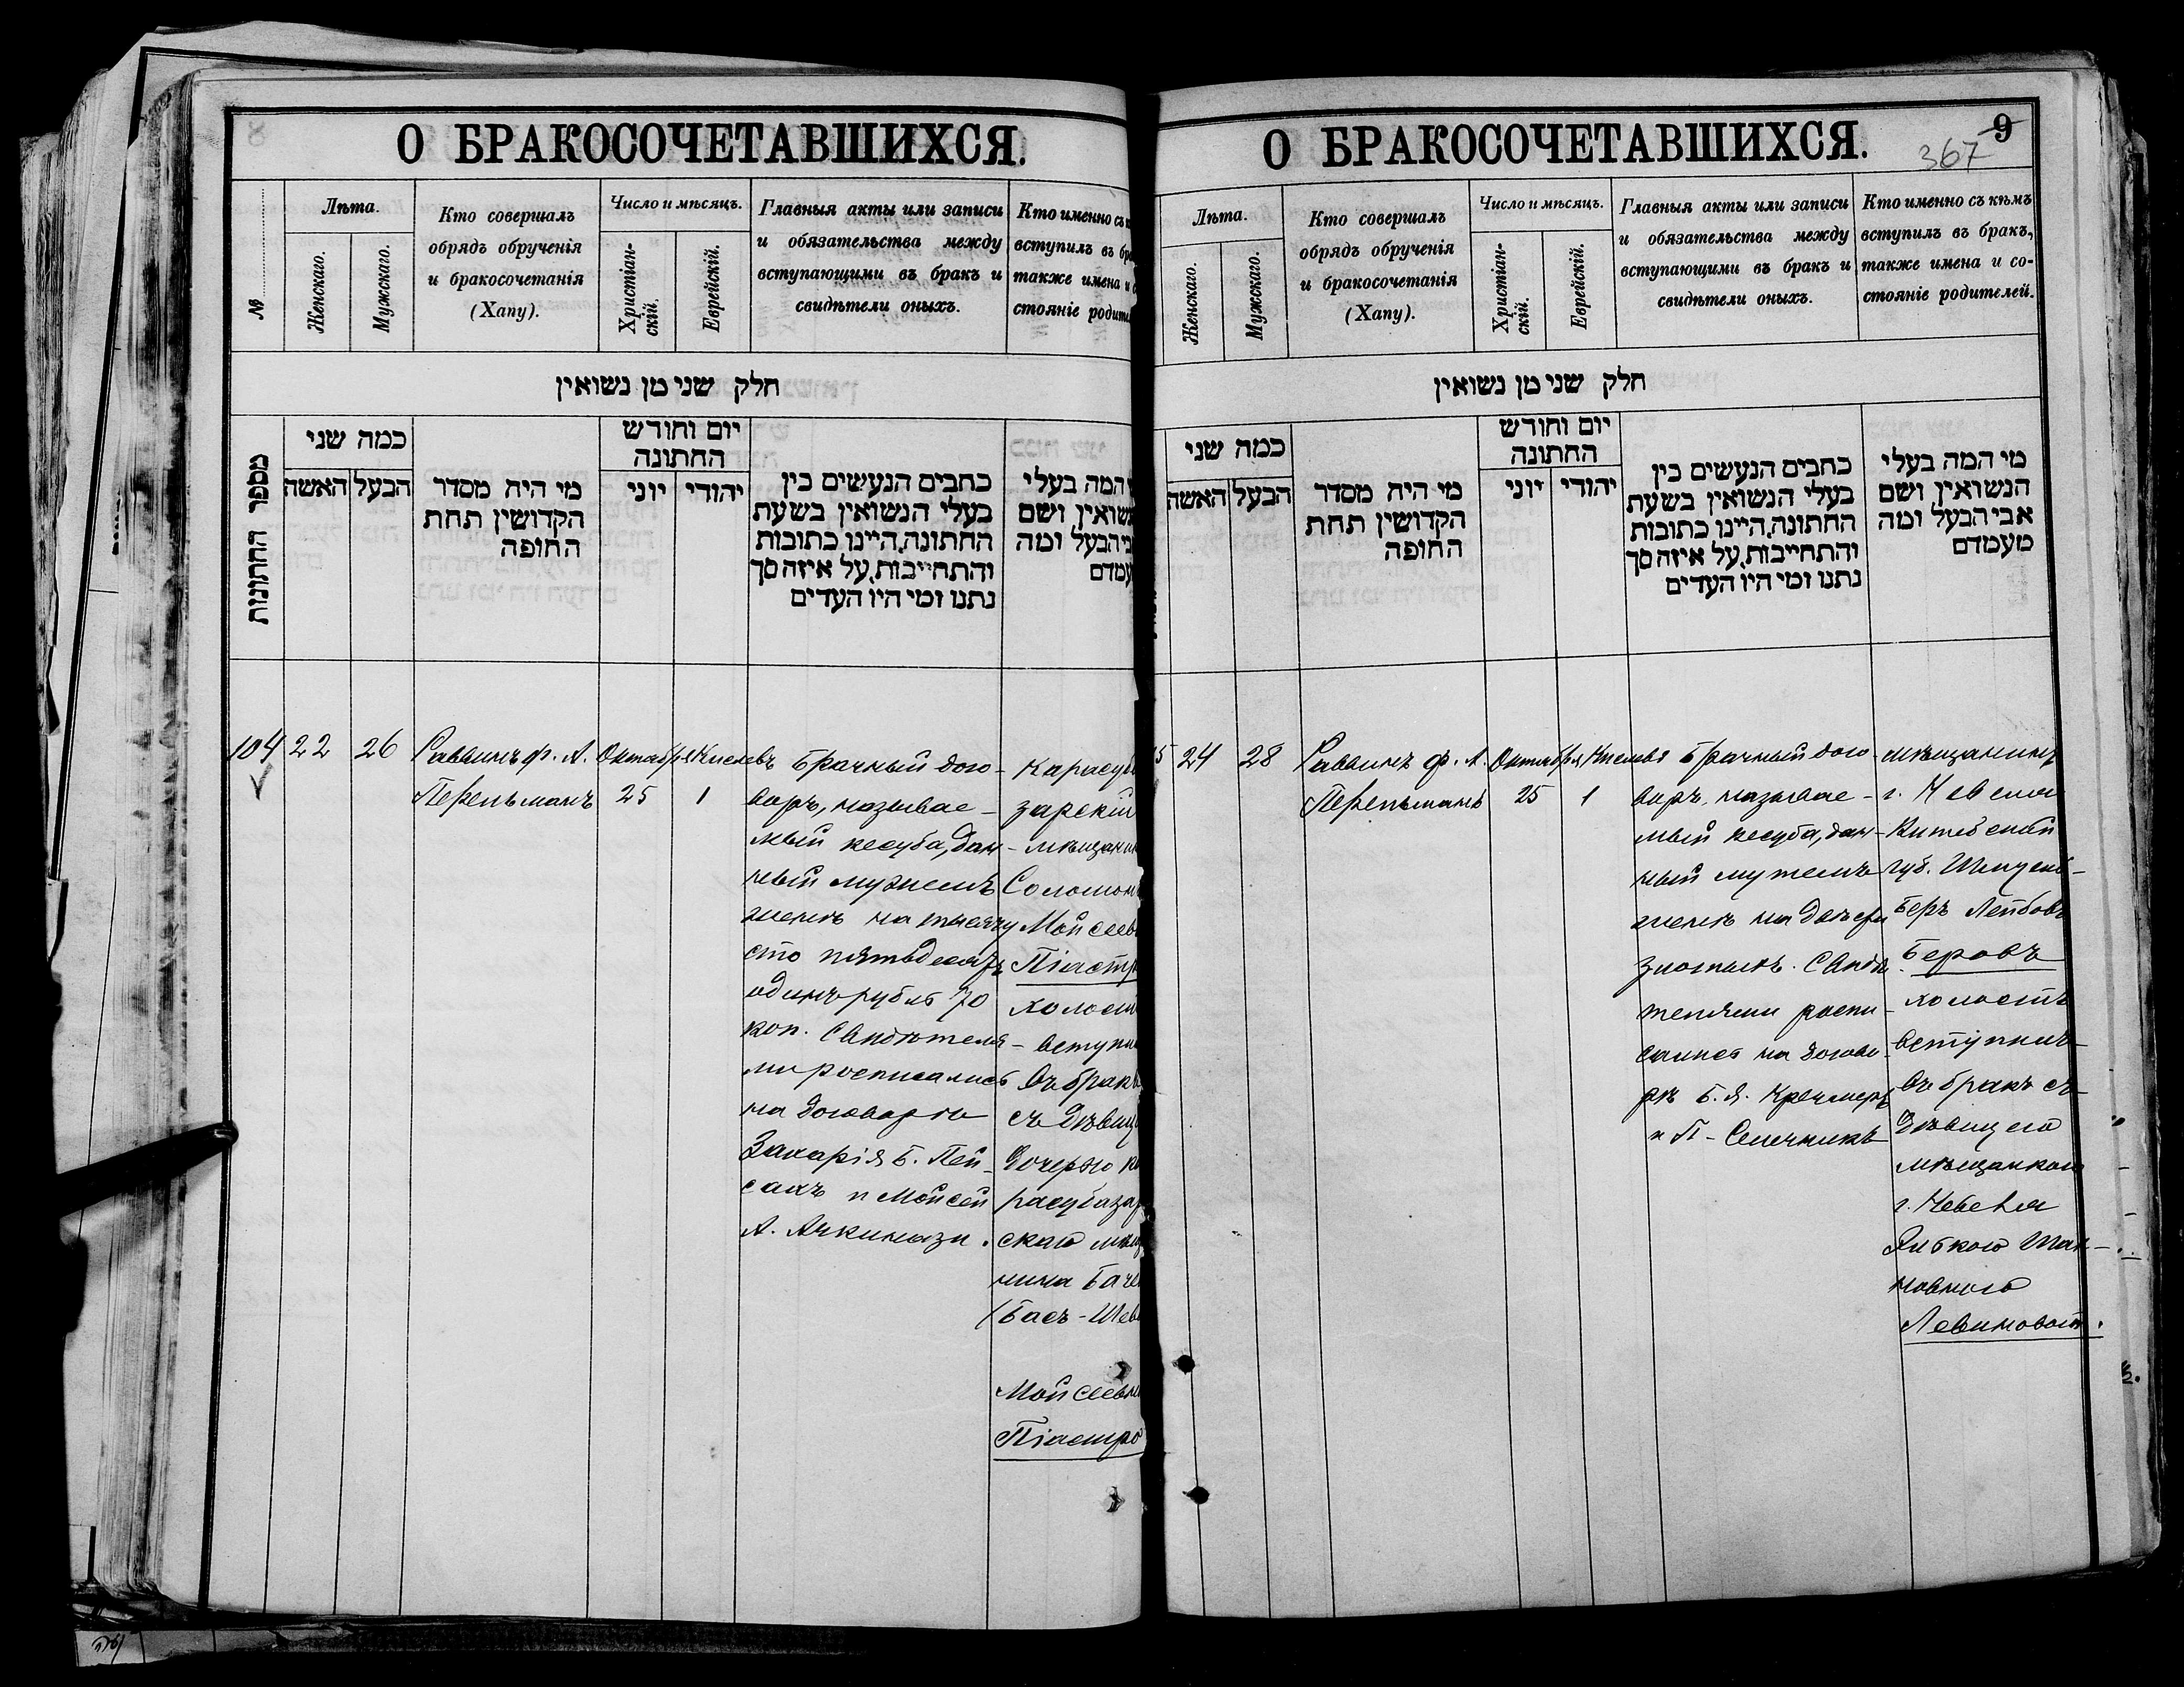 8
О БРАКОСОЧЕТАВШИХСЯ.
№
Лѣта.
Женскаго.
Мужскаго.
Кто совершалъ
обрядъ обрученія
и бракосочетанія
(Хапу).
Число и мѣсяцъ.
Христіан-
скій.
Еврейскій.
Главныя акты или записи
и обязательства между
вступающими въ бракъ и
свидѣтели оныхъ.
Кто именно съ
вступилъ въ
также имена и
стояніе
חלק שני מן נשואין
מספר החתונות
כמה שני
האשה
הבעל
מי היה מסדר
הקדושין תחת
החופה
יום וחודש
החתונה
יוני
יהודי
כתבים הנעשים בין
בעלי הנשואין בשעת
החתונה, היינו כתובות
והתחייבות, על איזה סך
נתנו ומי היו העדים
המה בעלי
ושם
הבעל ומה
104
22
26
Раввинъ ф. А.
Перельманъ
Октября
25
Кислевъ
1
Брачный дого-
воръ, называе-
мый кесуба, дан-
ный мужемъ
женѣ на тысячу
сто пятьдесятъ
одинъ рубль 70
коп. Свидѣтеля-
ми росписались
на договорѣ
Захарія Б. Пей-
сахъ и Мойсей
А. Ачкинази.
Карасуб
зарскій
мѣщанин
Соломонъ
Мойсеев
Піастр
холост
вступи
въ бракъ
съ дѣвиц
дочерью к
расубазар
скаго мѣщ
нина Баче
(Басъ-Шев
Мойсеевн
Піастро
О БРАКОСОЧЕТАВШИХСЯ.
9
367
Лѣта.
Женскаго.
Мужскаго.
Кто совершалъ
обрядъ обрученія
и бракосочетанія
(Хапу).
Число и мѣсяцъ.
Христіан-
скій.
Еврейскій.
Главныя акты или записи
и обязательства между
вступающими въ бракъ и
свидѣтели оныхъ.
Кто именно съ кѣмъ
вступилъ въ бракъ,
также имена и со-
стояніе родителей.
חלק שני מן נשואין
כמה שני
האשה
הבעל
מי היה מסדר
הקדושין תחת
החופה
יום וחודש
החתונה
יוני
יהודי
כתבים הנעשים בין
בעלי הנשואין בשעת
החתונה, היינו כתובות
והתחייבות, על איזה סך
נתנו ומי היו העדים
מי המה בעלי
הנשואין ושם
אבי הבעל ומה
מעמדם
5
24
28
Раввинъ ф. А.
Перельманъ
Октября
25
Кислевъ
1
Брачный дого-
воръ, называе-
мый кесуба, дан-
ный мужемъ
женѣ на двѣсти
злотыхъ. Свидѣ-
телями роспи-
сались на догово-
рѣ Б. Я. Кречмеръ
и П. Сечникъ
мѣщанинъ
г. Невеля
Витебской
губ.
Беръ Лейбовъ
Беровъ
холостъ
вступилъ
въ бракъ съ
дѣвицею
мѣщанкою
г. Невеля
новною
Левиновой.